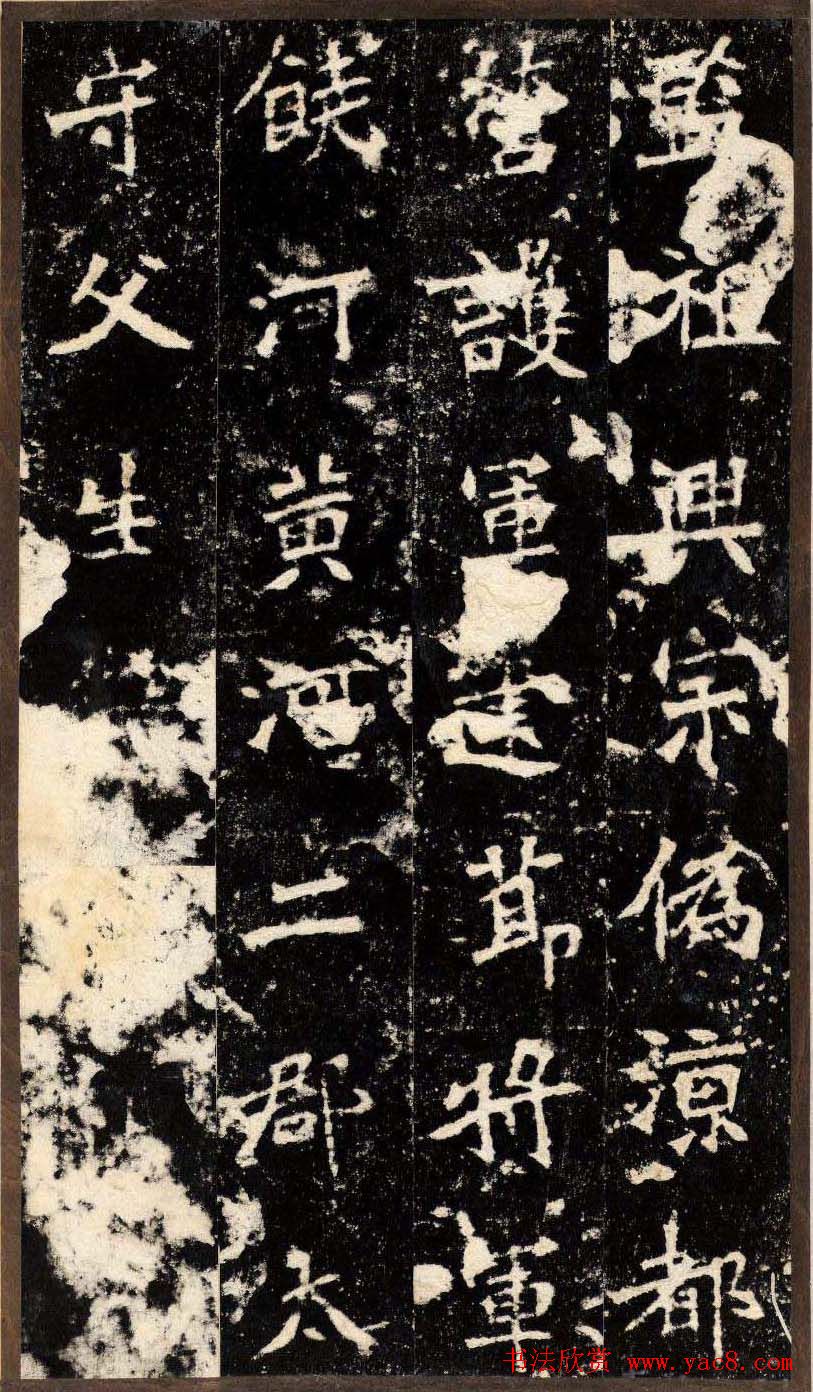 監祖興宗偽涼都
營護軍建節將軍
饒河黃河二郡太
守父生
书法欣赏 www.yac8.com